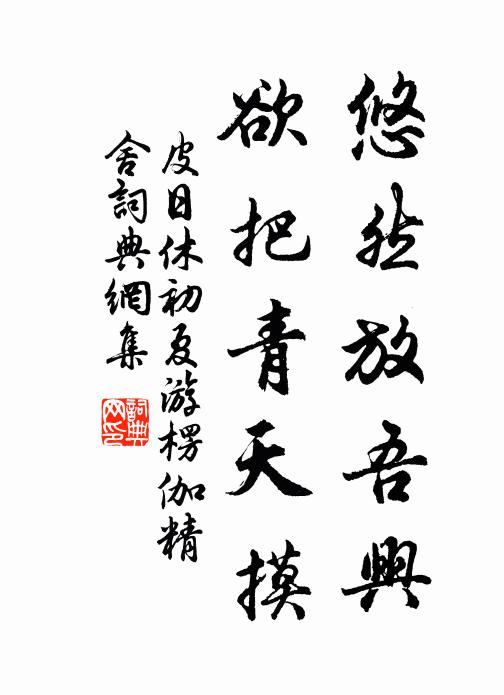 悠然放吾興
欲把青天摸
皮日休初夏游楞伽精
舍詞典網集
詞典
网印